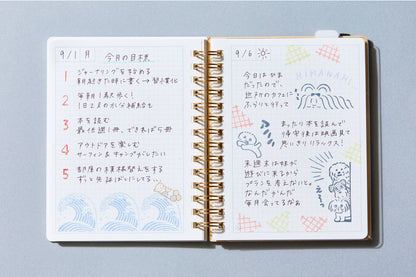 9/1 月
今月の目標
1 ジャーナリングを始める
朝起きた時に書く→習慣化
2 毎朝1万歩く!
1日2ℓの水分補給も
3 本を読む
最低週1冊、できれば5冊
4 アウトドアを楽しむ
サーフィン&キャンプがしたい
5 部屋の模様替えをする
ずっと先延ばしにしてる…
9/6
HIMAWARI
今日はひま
だったので、
近所のカフェに
ふらりと行って
まったり本を読んで
帰宅後は映画見て
思いきりリラックス!
来週末は妹が
遊びに来るから
プランを考えないと。
なんだかんだ
毎月会ってるなぁ